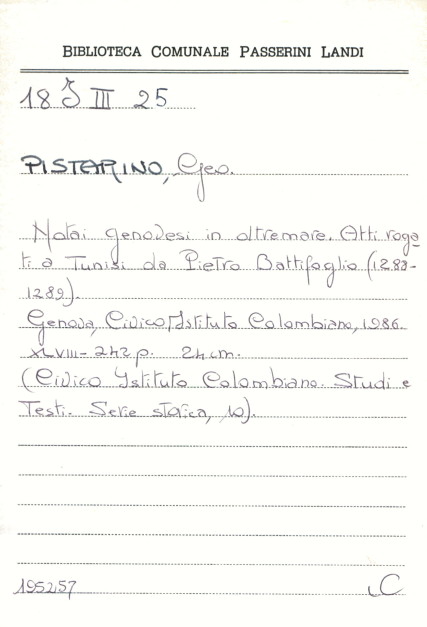 BIBLIOTECA COMUNALE PASSERINI LANDI
18 J III 25
PISTARINO, Geo.
Notai genovesi in oltremare. Atti roga-
ti a Tunisi da Pietro Battifoglio (1288-
1289).
Genova, Civico Istituto Colombiano, 1986.
XLVIII-242 p. 24 cm.
(Civico Istituto Colombiano. Studi e
Testi. Serie storica, 10).
195257 C